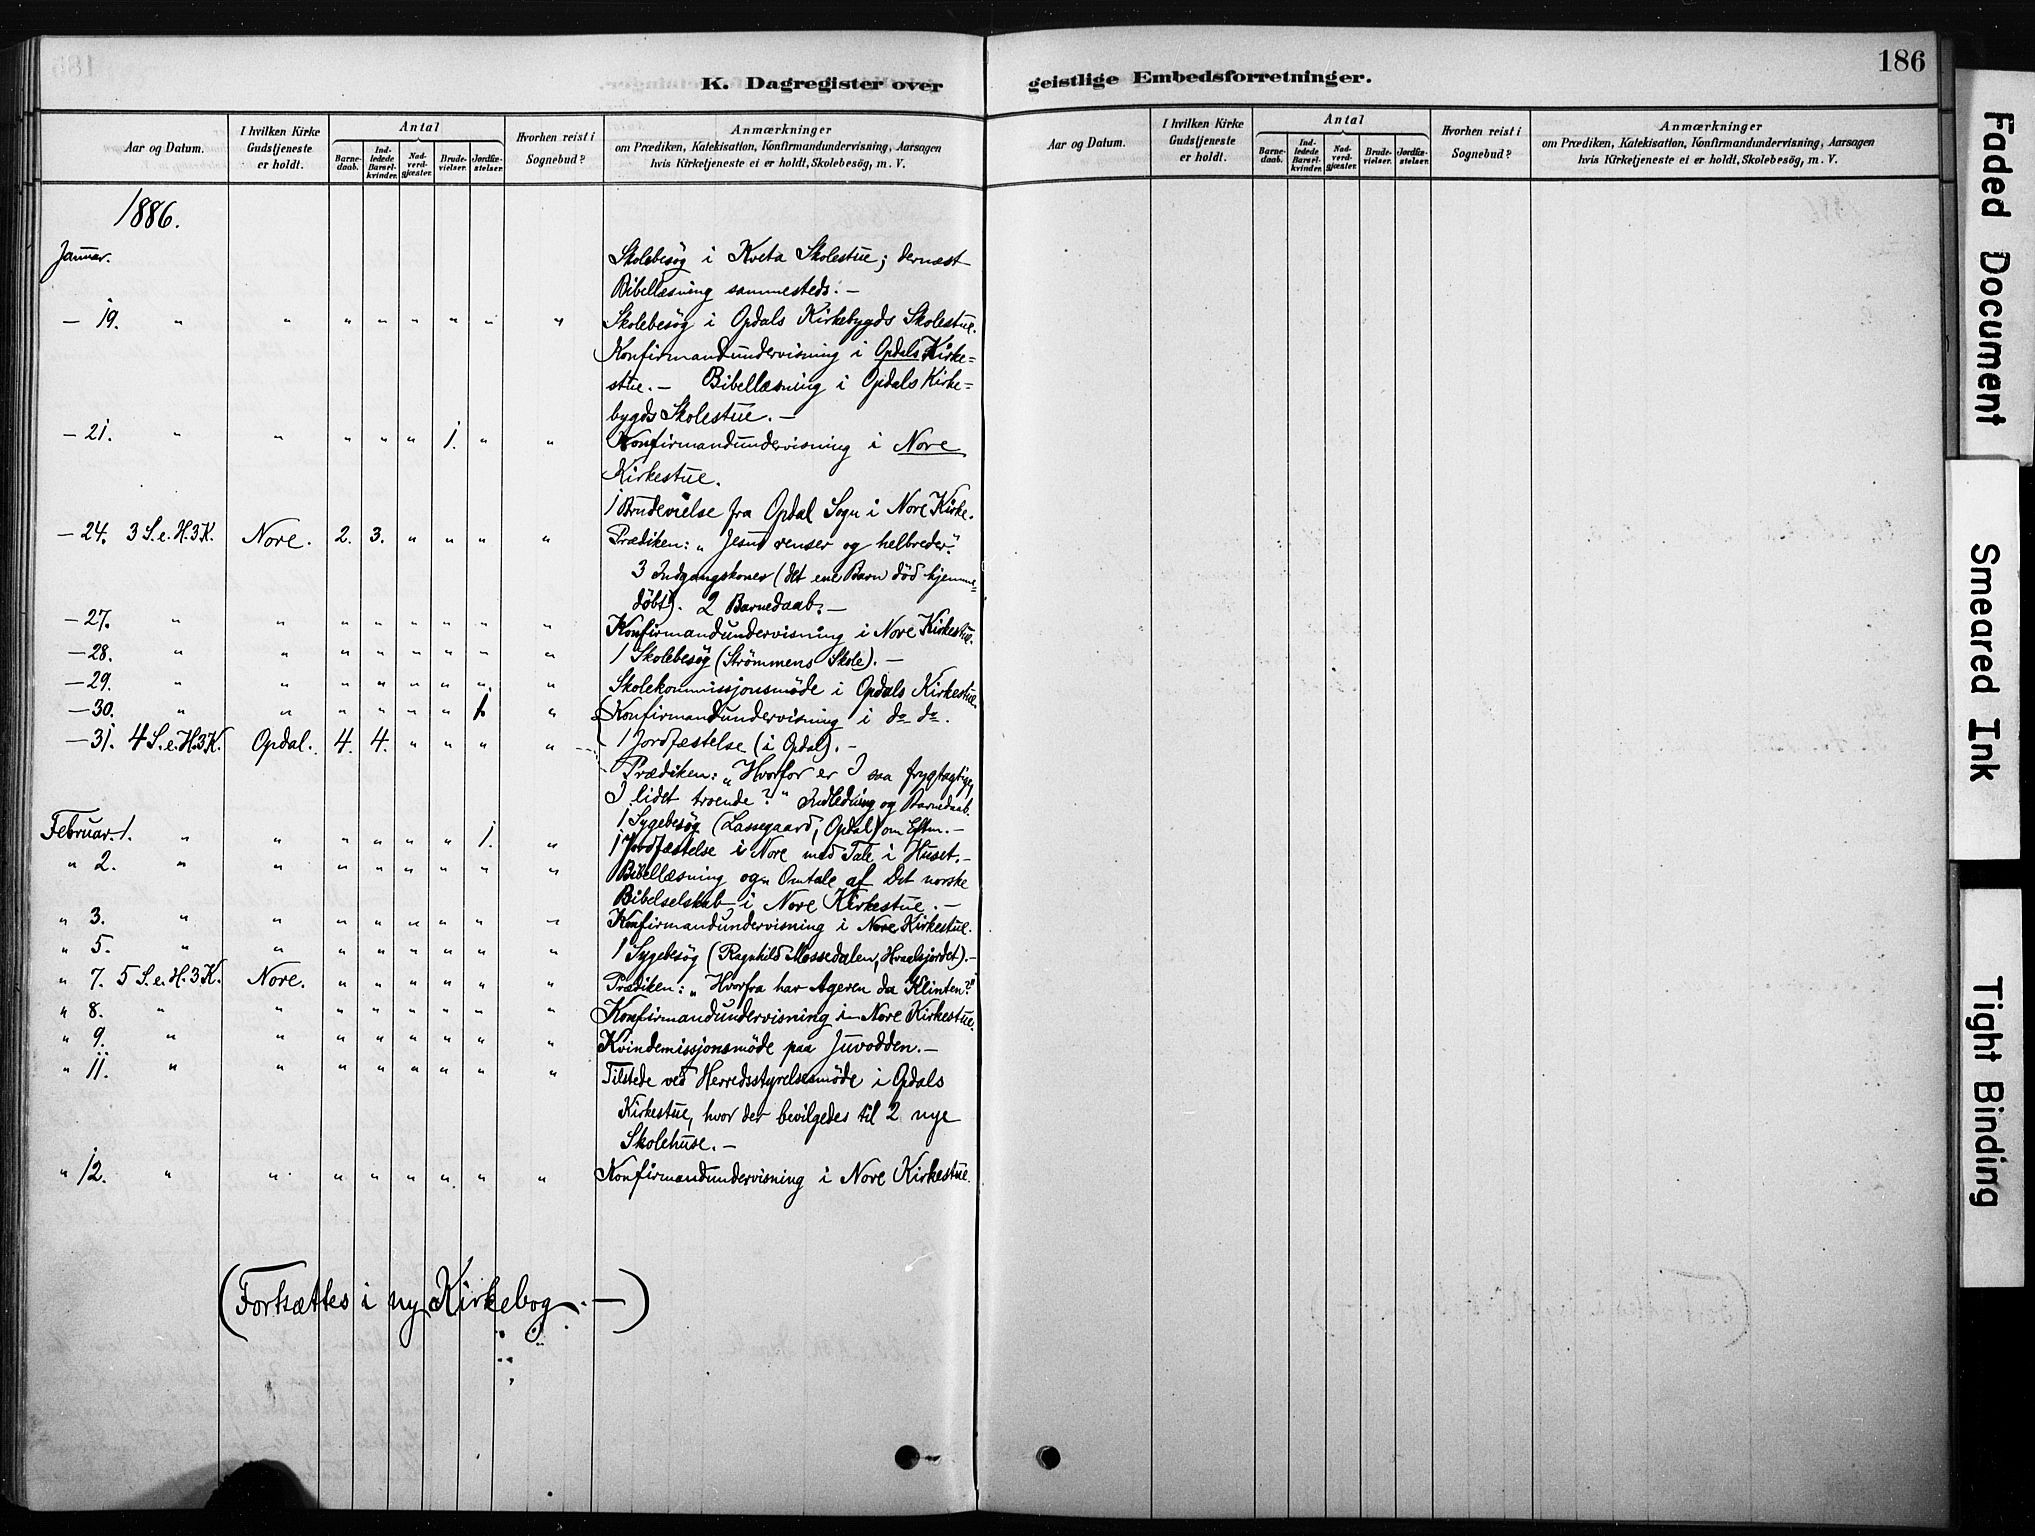 186
K. Dagregister over geistlige Embedsforretninger.
Aar og Datum. I hvilken Kirke Gudstjeneste er holdt. Antal Barnedaab. Indledede Barselkvinder. Nadverdgjæster. Brudevielser. Jordfæstelser. Hvorhen reist i Sognebud? Anmærkninger om Prædiken, Katekisation, Konfirmandundervisning, Aarsagen hvis Kirketjeneste ei er holdt, Skolebesög, m. V.
Aar og Datum. I hvilken Kirke Gudstjeneste er holdt. Antal Barnedaab. Indledede Barselkvinder. Nadverdgjæster. Brudevielser. Jordfæstelser. Hvorhen reist i Sognebud? Anmærkninger om Prædiken, Katekisation, Konfirmandundervisning, Aarsagen hvis Kirketjeneste ei er holdt, Skolebesög, m. V.
1886.
Januar. Skolebesög i Kveta Skolestue; dernæst
Bibellæsning sammesteds. –
– 19. " " " " " " " " Skolebesög i Opdals Kirkebygds Skolestue.
Konfirmandundervisning i Opdals Kirke=
stue. – Bibellæsning i Opdals Kirke=
bygds Skolestue. –
– 21. " " " " " 1. " " Konfirmandundervisning i Nore
Kirkestue.
1 Brudevielse fra Opdal Sogn i Nore Kirke.
– 24. 3 S. e. H. 3 K. Nore. 2. 3. " " " " Prædiken: "Jesus renser og helbreder."
3 Indgangskoner (det ene Barn död hjemme=
döbt). 2 Barnedaab. –
– 27. " " " " " " " " Konfirmandundervisning i Nore Kirkestue.
– 28. " " " " " " " " 1 Skolebesög (Strömmens Skole). –
– 29. " " " " " " " " Skolekommissjonsmöde i Opdals Kirkestue.
– 30. " " " " " " 1. " Konfirmandundervisning i do do.
– 31. 4 S. e. H. 3 K. Opdal. 4. 4. " " " " 1 Jordfæstelse (i Opdal). –
Prædiken: "Hvorfor er I saa frygtagtige,
I lidet troende?" Indledning og Barnedaab.
1 Sygebesög (Lassegaard, Opdal) om Eftm. –
Februar. 1. " " " " " " 1. " 1 Jordfæstelse i Nore med Tale i Huset. –
" 2. " " " " " " " " Bibellæsning og Omtale af Det norske
Bibelselskab i Nore Kirkestue. –
" 3. " " " " " " " " Konfirmandundervisning i Nore Kirkestue.
" 5. " " " " " " " " 1 Sygebesög (Ragnhild Mossedalen, Hvaalsjordet). –
" 7. 5 S. e. H. 3 K. Nore. " " " " " " Prædiken: "Hvorfra har Ageren da Klinten?"
" 8. " " " " " " " " Konfirmandundervisning i Nore Kirkestue.
" 9. " " " " " " " " Kvindemissjonsmöde paa Juvodden. –
" 11. " " " " " " " " Tilstede ved Herredsstyrelsesmöde i Opdals
Kirkestue, hvor der bevilgedes til 2 nye
Skolehuse. –
" 12. " " " " " " " " Konfirmandundervisning i Nore Kirkestue.
(Fortsættes i ny Kirkebog. –)
Faded Document
Smeared Ink
Tight Binding